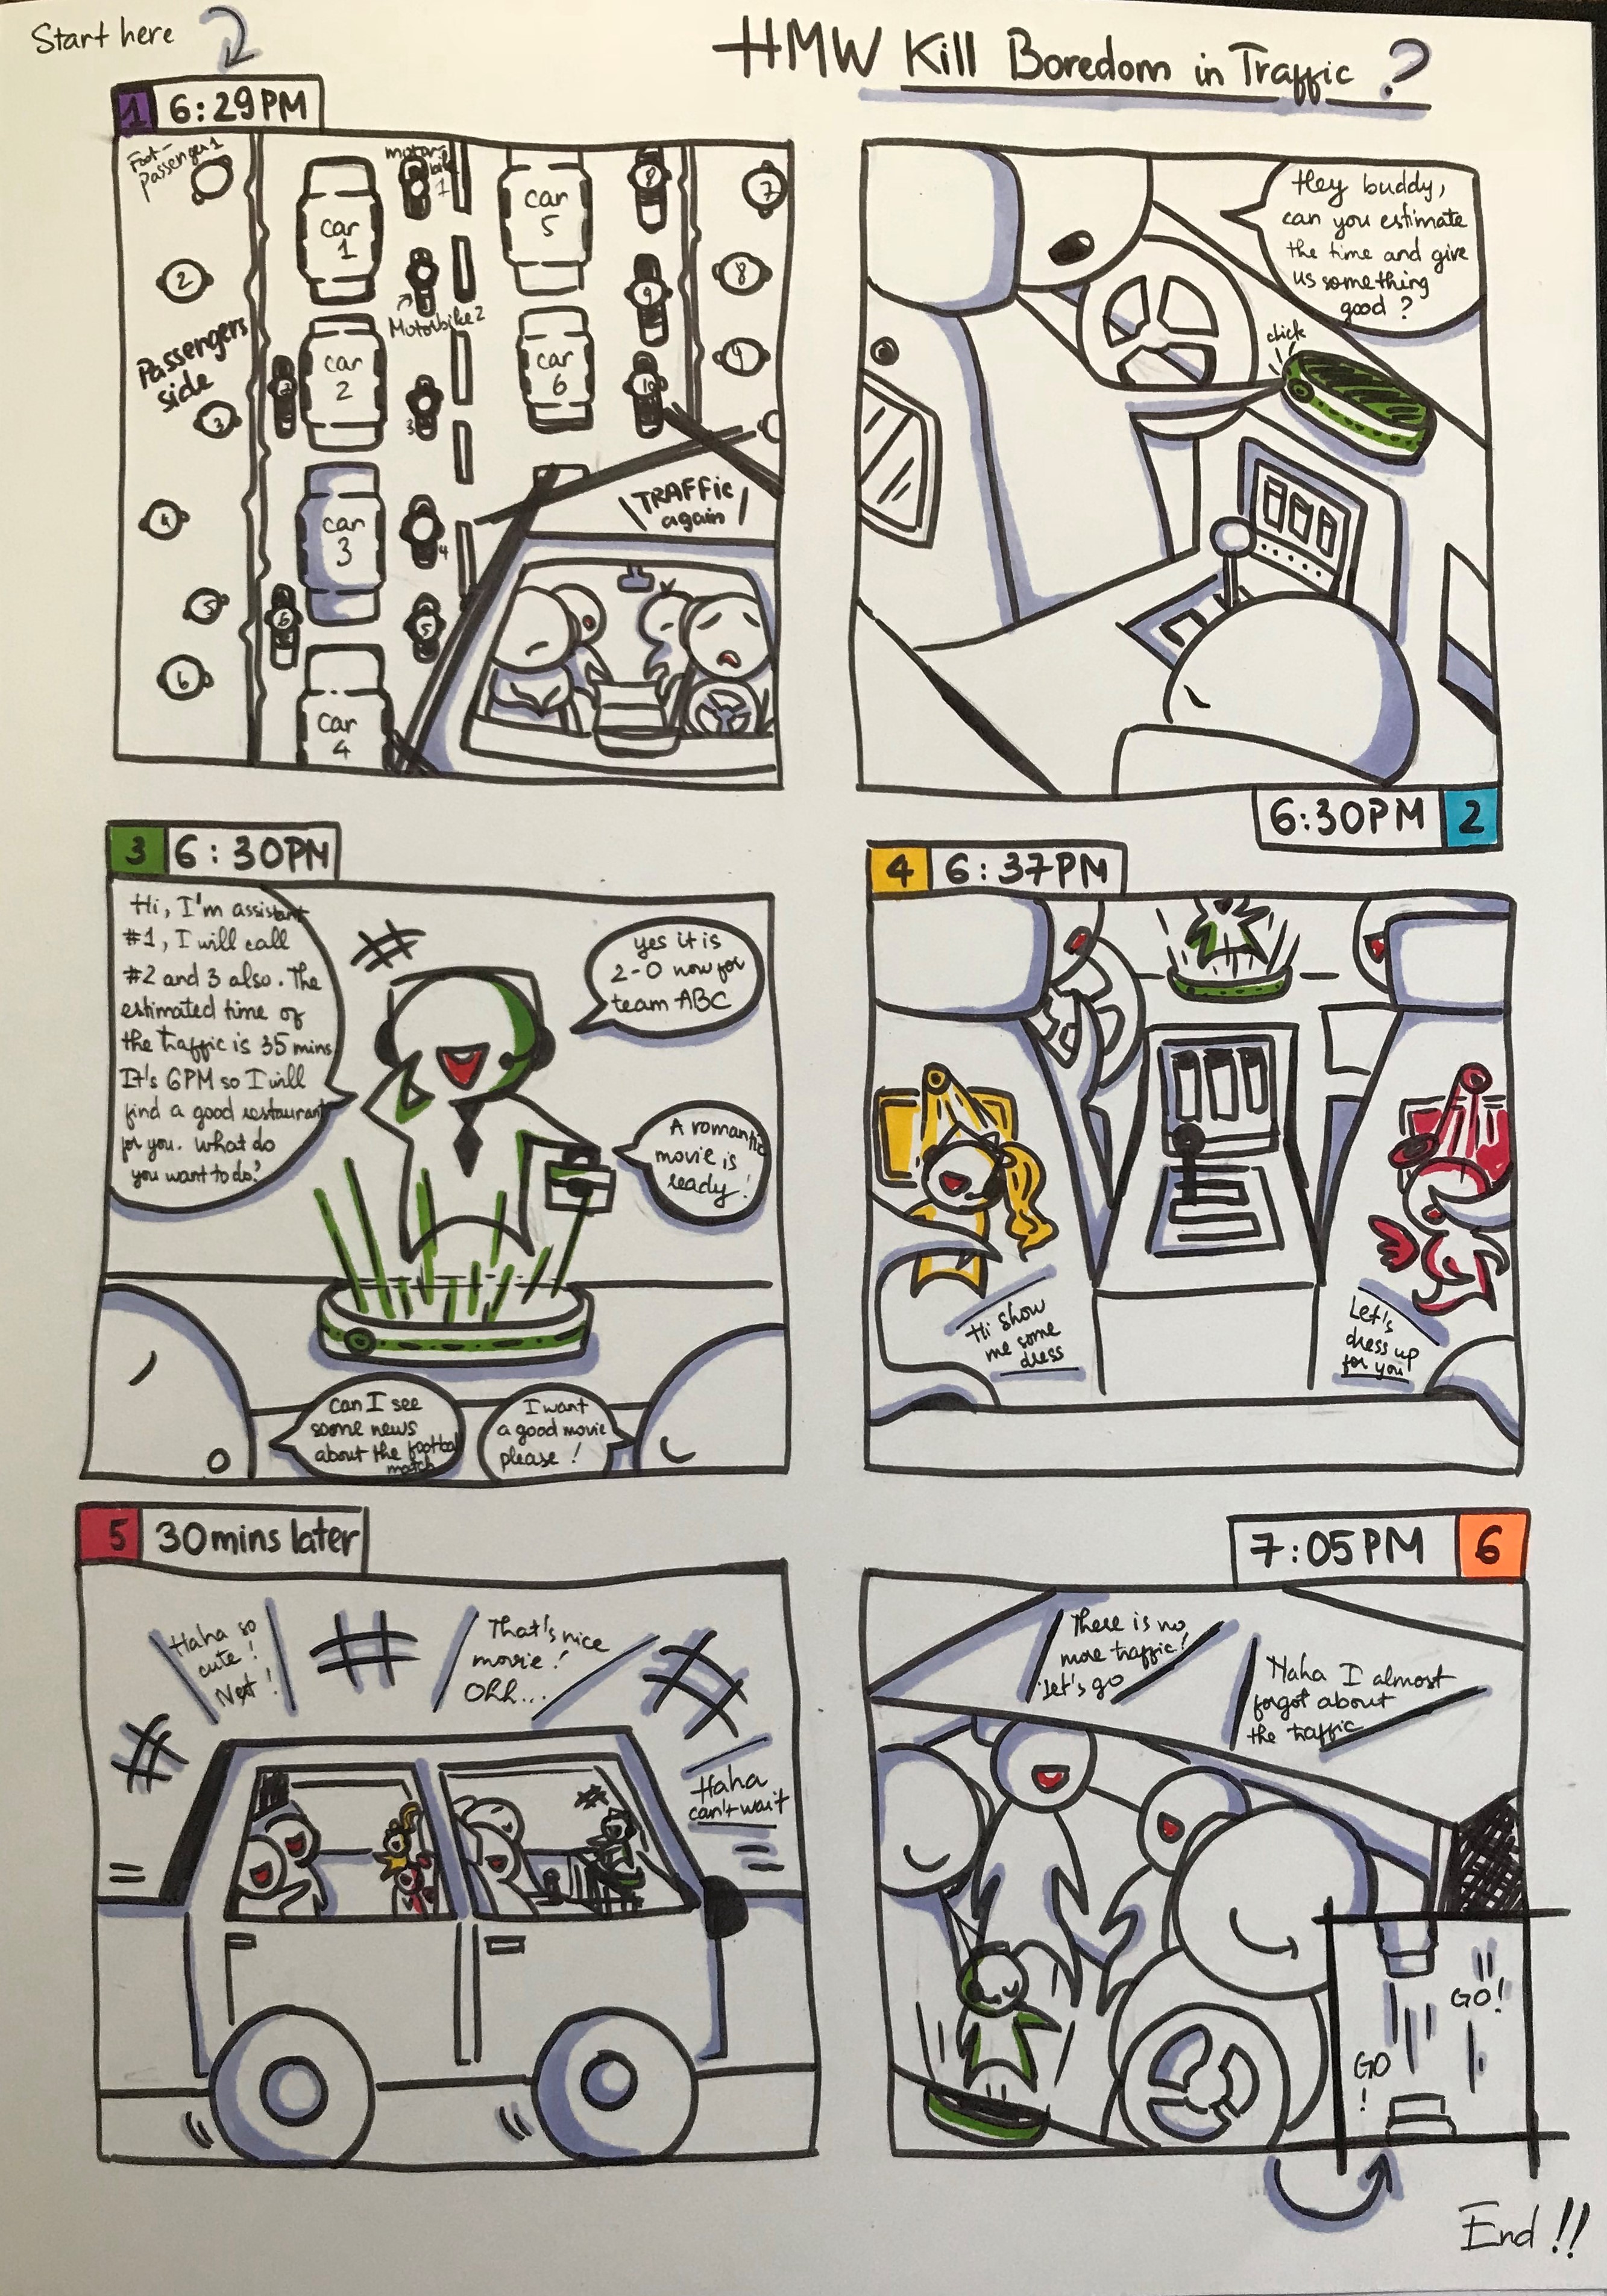 Start here
HMW Kill Boredom in Traffic ?
1 6:29PM
Foot-
Passenger 1
2
Passengers
side
3
4
5
6
car
1
car
2
car
3
car
4
motor-
bike
1
Motorbike 2
3
4
5
6
car
5
car
6
8
9
10
7
8
9
TRAFFic
again
Hey buddy,
can you estimate
the time and give
us something
good ?
click
6:30PM 2
3 6:30PM
Hi, I'm assistant
#1, I will call
#2 and 3 also. The
estimated time of
the traffic is 35 mins.
It's 6PM so I will
find a good restaurant
for you. What do
you want to do?
yes it is
2-0 now for
team ABC
A romantic
movie is
ready!
Can I see
some news
about the football
match
I want
a good movie
please !
4 6:37PM
Hi show
me some
dress
Let's
dress up
for you
5 30mins later
Haha so
cute !
Next !
That's nice
movie !
Ohh...
Haha
can't wait
7:05PM 6
There is no
more traffic!
Let's go
Haha I almost
forgot about
the traffic
GO!
GO
!
End !!